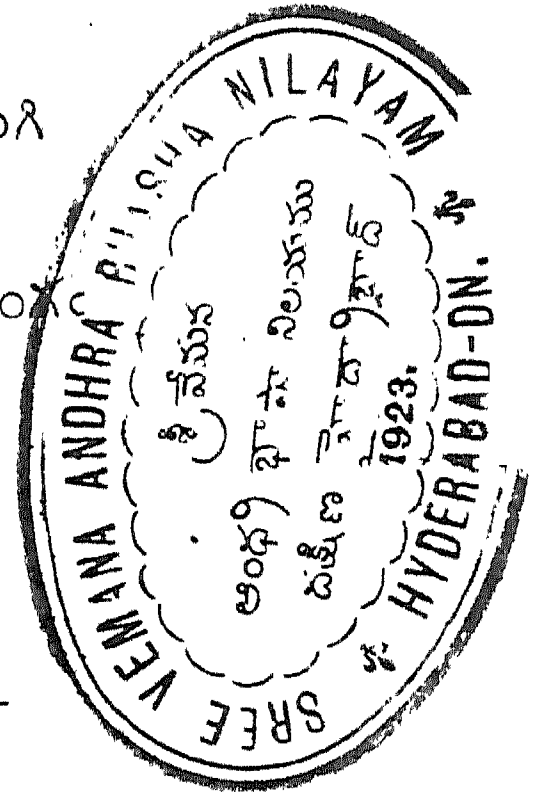 SREE VEMANA ANDHRA BHASHA NILAYAM
శ్రీ వేమన
ఆంధ్ర భాషా నిలయము
దక్షిణ హైద్రాబాద్
1923.
HYDERABAD-DN.